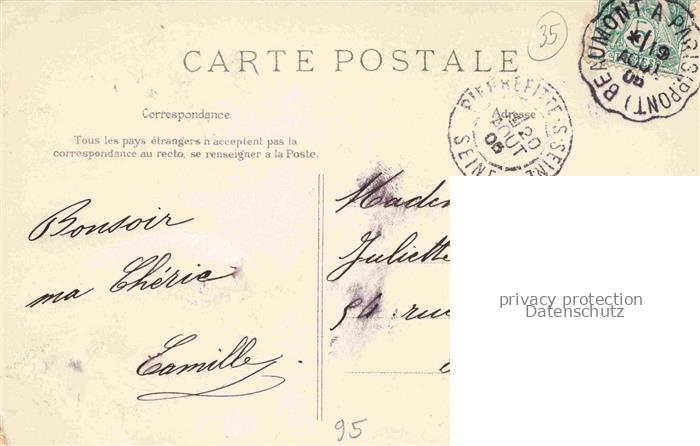 35
CARTE POSTALE
BEAUMONT A PARIS (PONT)
19
AOUT
05
PIERREFITTE-S-SEINE
20
AOUT
05
SEINE
Correspondance
Adresse
Tous les pays étrangers n'acceptent pas la
correspondance au recto, se renseigner à la Poste.
Bonsoir
ma Chérie
Camille
Madem
Juliette
54 rue
privacy protection
Datenschutz
95